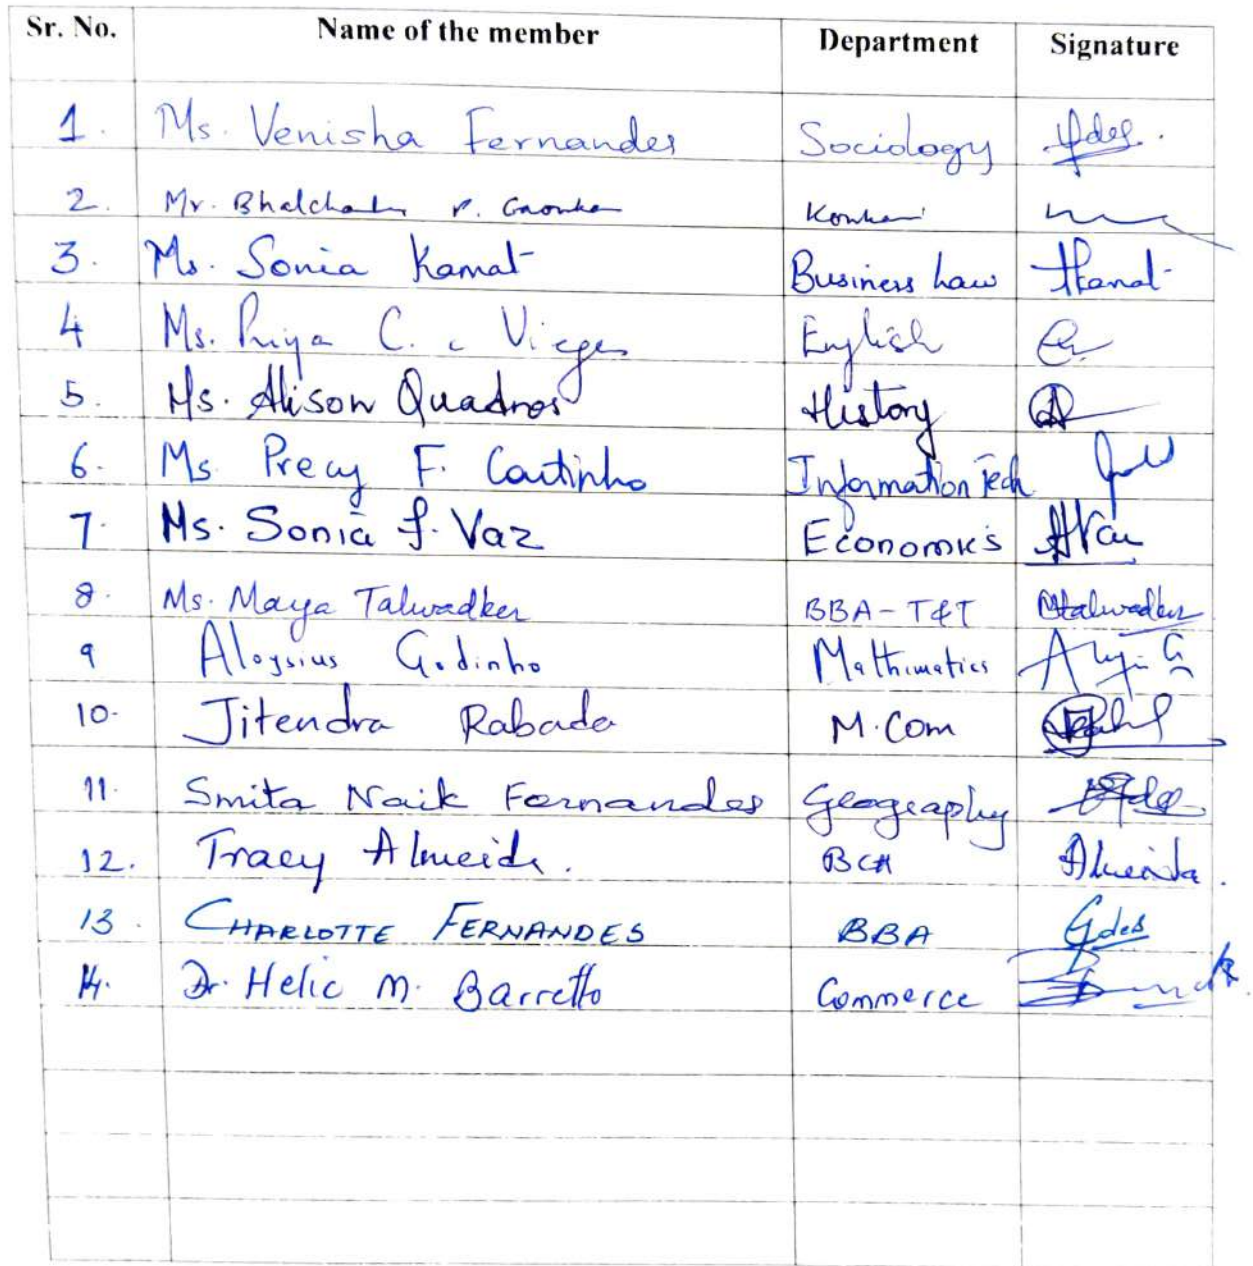 Sr. No. Name of the member Department Signature
1. Ms. Venisha Fernandes Sociology
2. Mr. P. Konkani
3. Ms. Sonia Kamat Business Law Kamat
4 Ms. Priya C. Viegas English
5. Ms. Alison Quadros History
6. Ms Precy F. Coutinho Information Tech
7. Ms. Sonia f. Vaz Economics
8. Ms. Maya Talwadker BBA - T&T Mtalwadker
9 Aloysius Godinho Mathimatics
10. Jitendra Rabada M.Com
11. Smita Naik Fernandes Geography
12. Tracy Almeida. BCA Almeida.
13. CHARLOTTE FERNANDES BBA
14. Dr. Helic M. Barretto Commerce